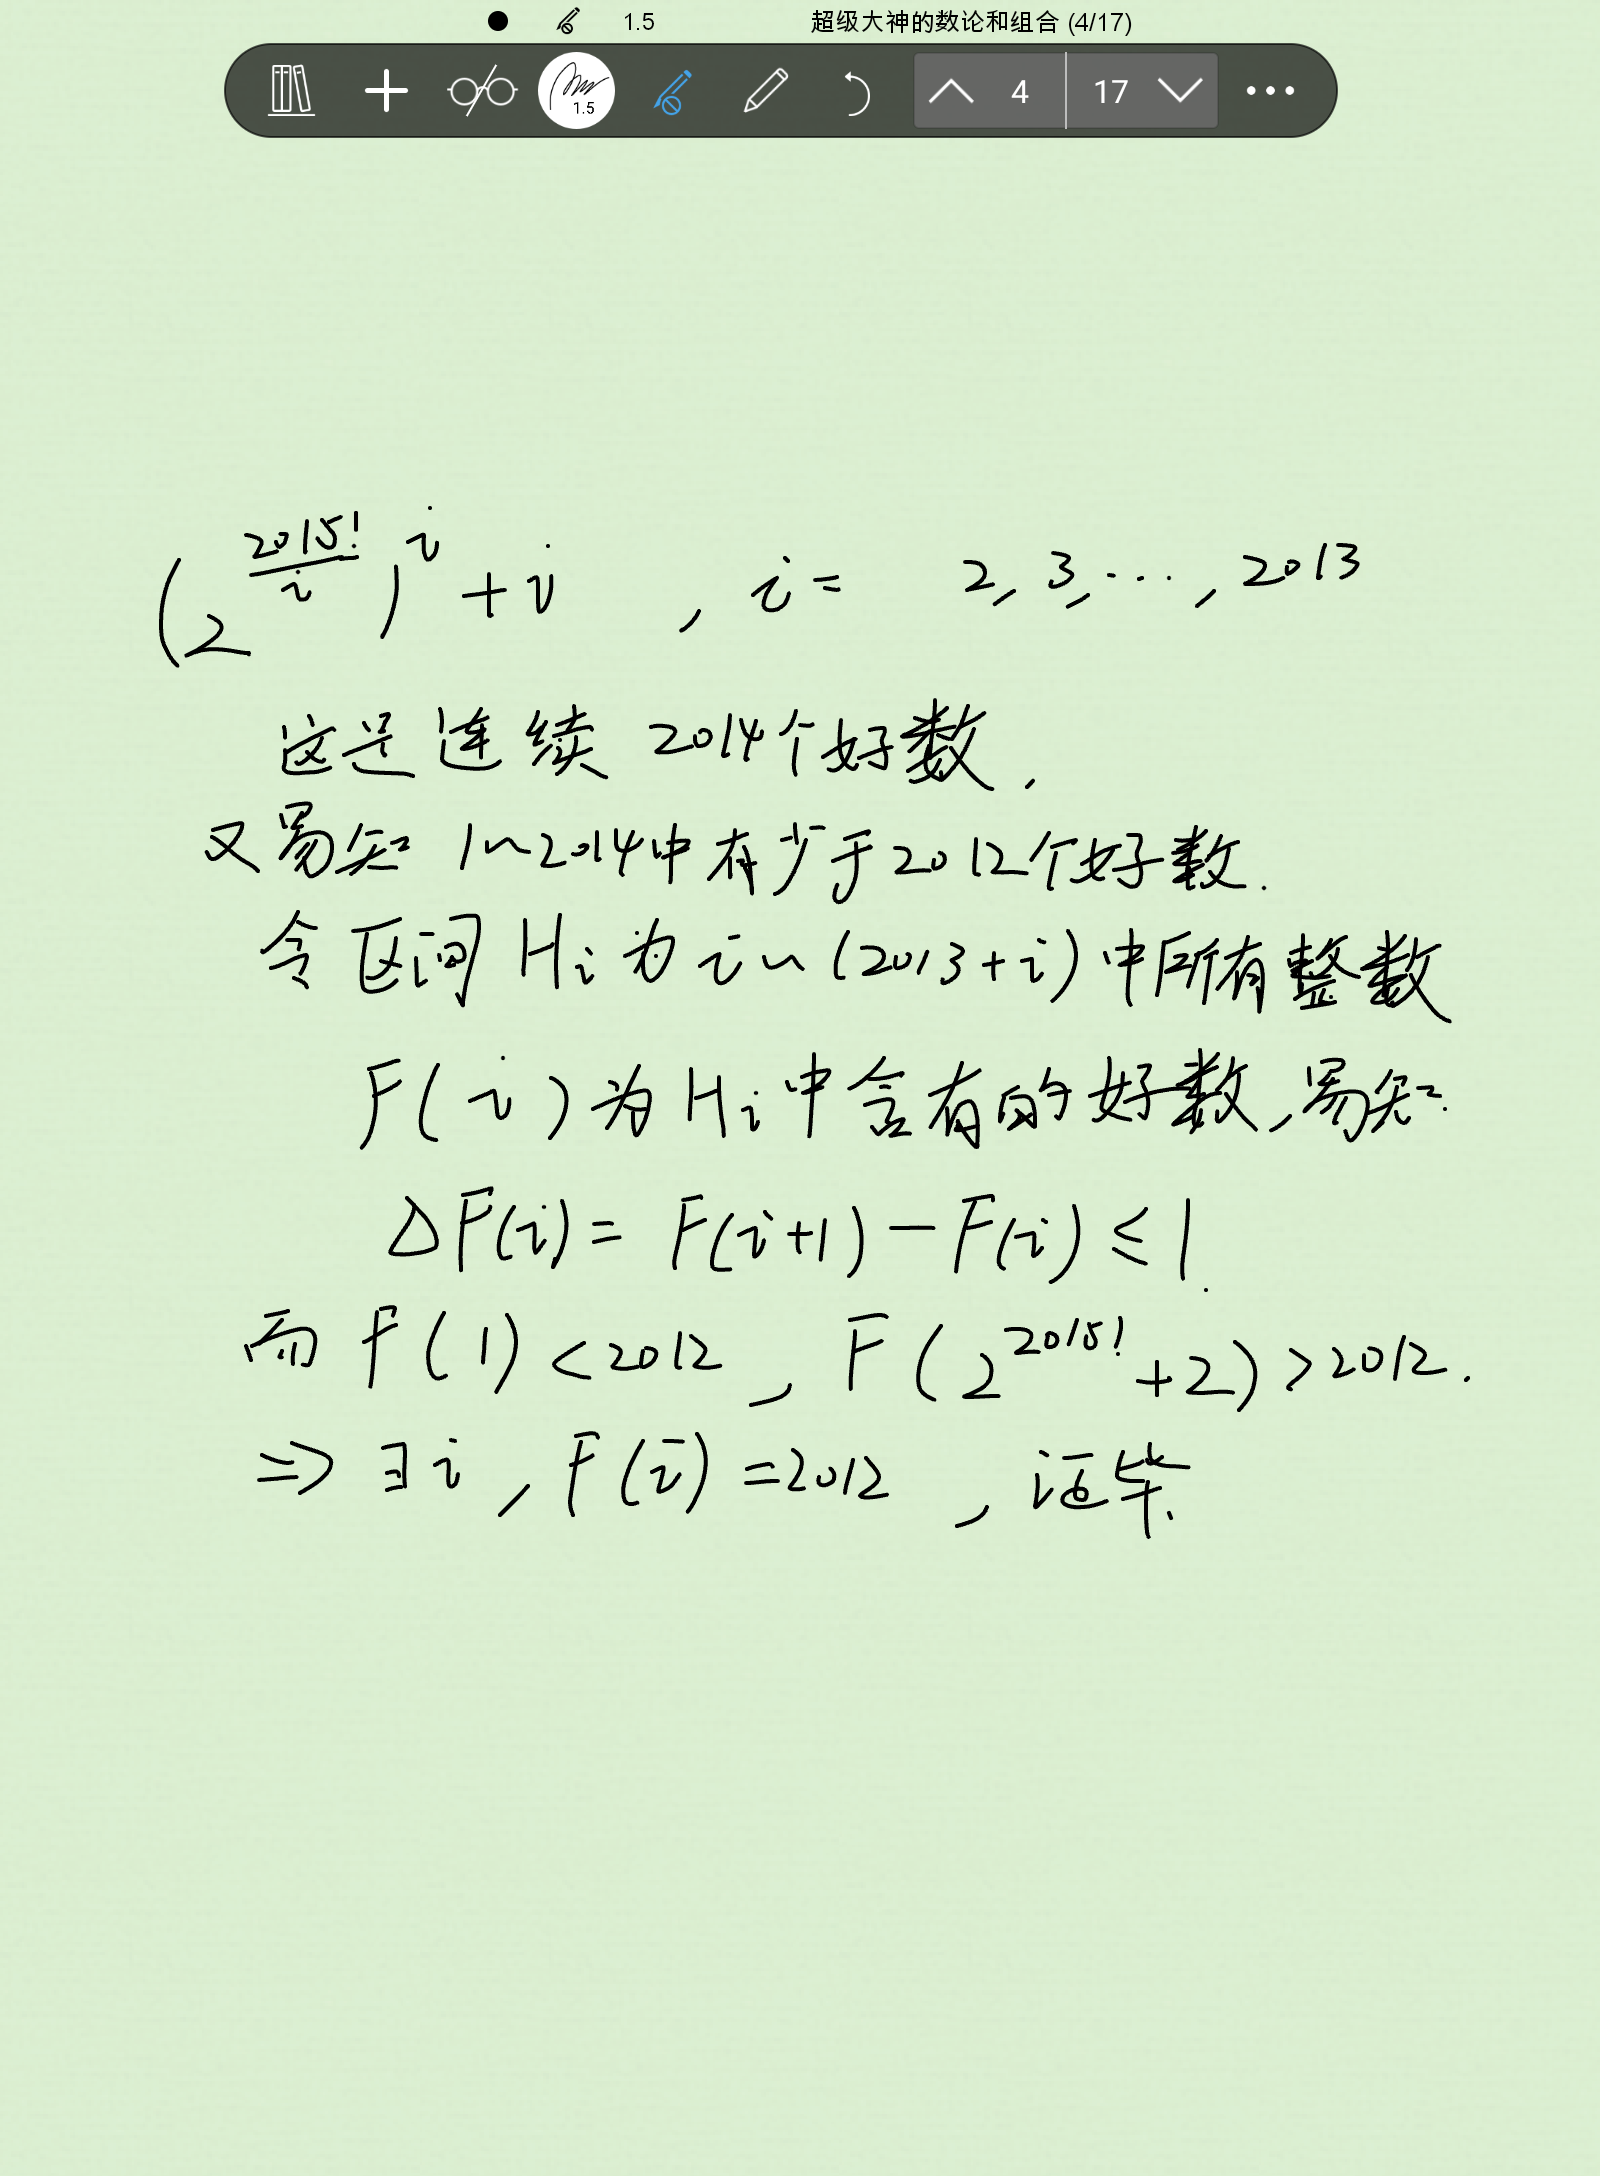 1.5 超级大神的数论和组合 (4/17)
1.5 4 17
(2^{\frac{2015!}{i}})^i + i , i = 2, 3, ..., 2013
这是连续 2014个好数,
又易知 1~2014中有少于2012个好数.
令区间 H_i 为 i ~ (2013+i) 中所有整数
F(i) 为 H_i 中含有的好数,易知.
ΔF(i) = F(i+1) - F(i) ≤ 1.
而 F(1) < 2012 , F(2^{2015!}+2) > 2012.
⇒ ∃ i , F(i) = 2012 , 证毕.